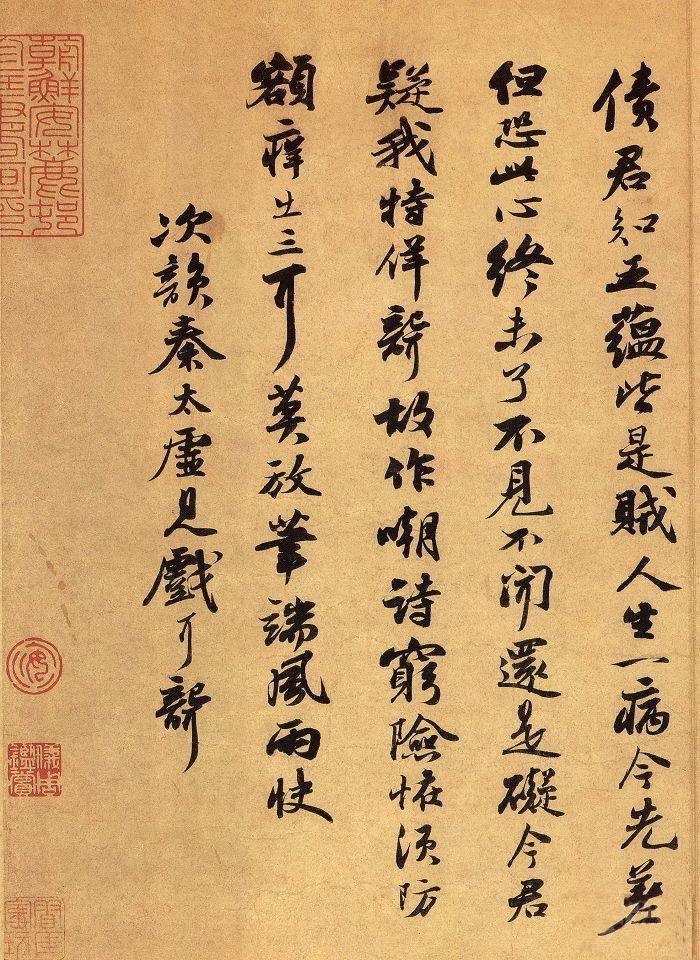 債君知五蘊皆是賊人生一病今先差
但恐此心終未了不見不聞還是礙今君
疑我特佯聾故作嘲詩窮險恠須防
額癢出三耳莫放筆端風雨快
次韻秦太虛見戲耳聾
朝鮮安麓邨
儀周鑑賞